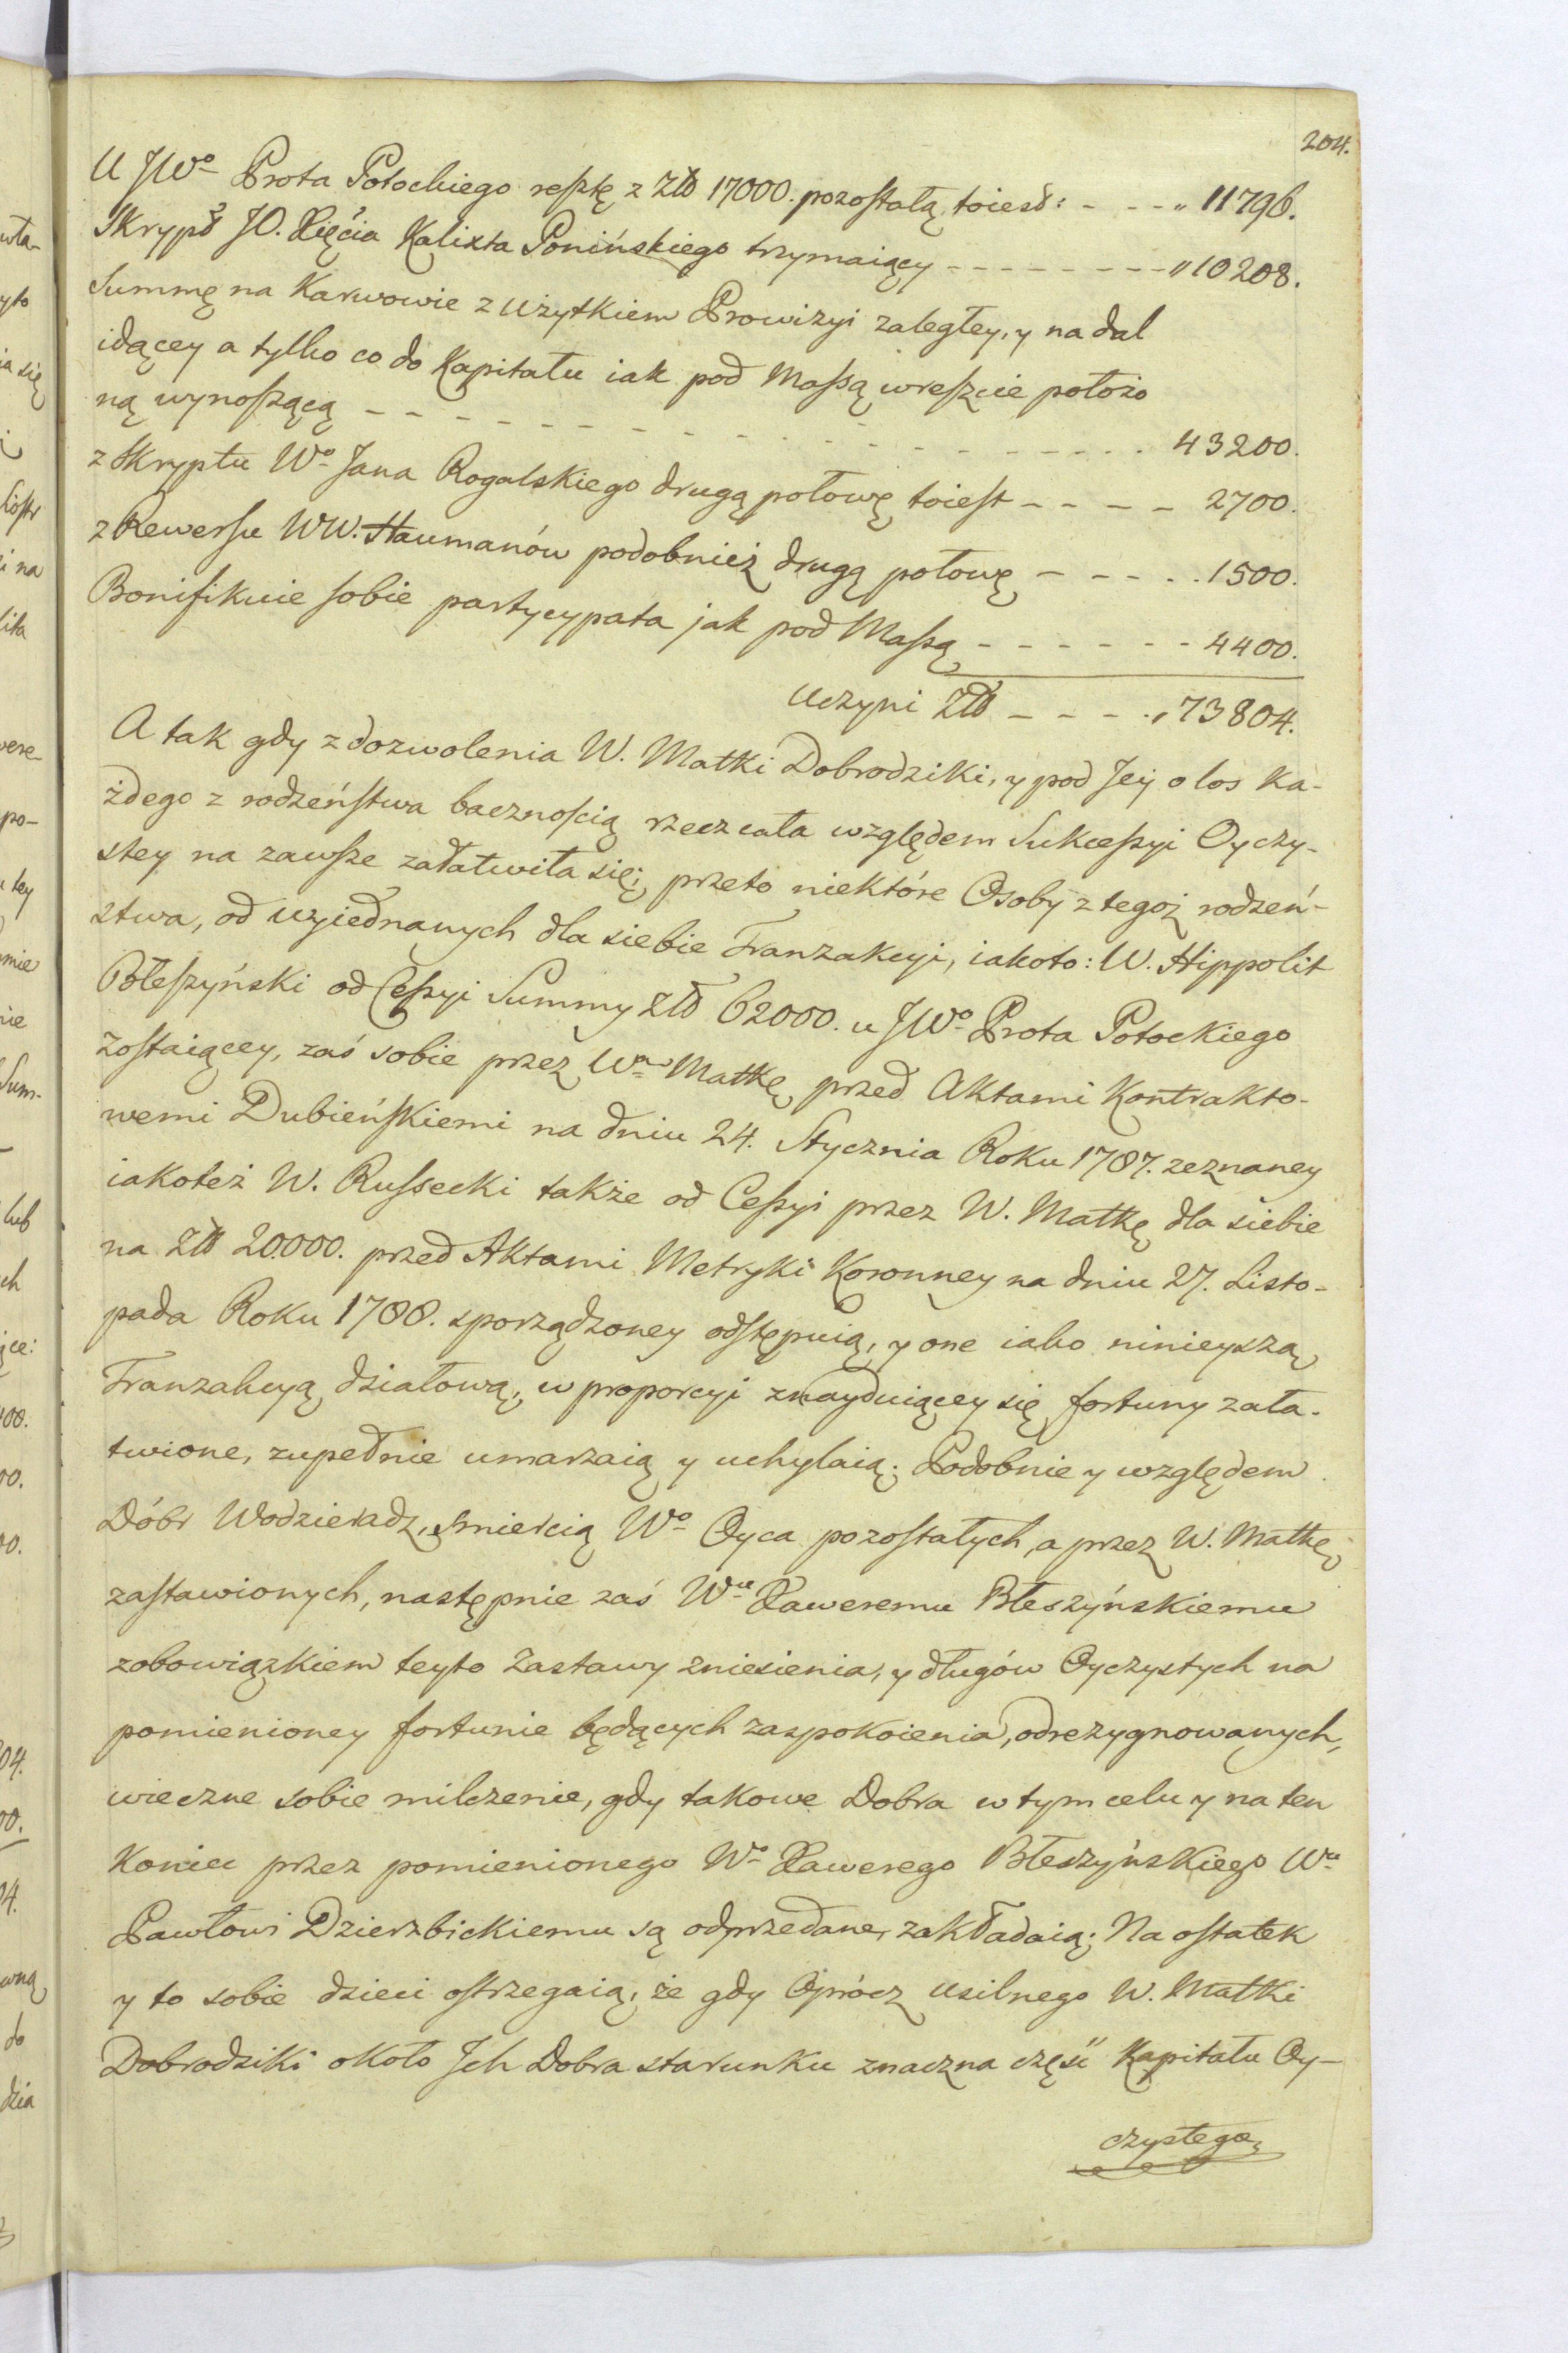 204.
U JWo Prota Potockiego resztę z Złł 17000. pozostałą, toiest: - - - „ 11796.
Skrypt JO. Xięcia Kalixta Ponińskiego trzymaiący - - - - - - - - „ 10208.
Summę na Karwowie z użytkiem Prowizyi zaległey, y na dal
idącey a tylko co do Kapitału iak pod Massą wreszcie położo
ną wynoszącą - - - - - - - - - - - - - - - - - 43200.
z Skryptu Wo Jana Rogalskiego drugą połowę toiest - - - - 2700.
z Rewersu WW. Haumanów podobnież drugą połowę - - - - . 1500.
Bonifikuie sobie partycypata jak pod Massą - - - - - - 4400.
Uczyni Złł - - - - „ 73804.
A tak gdy z dozwolenia W. Matki Dobrodziki, y pod Jey o los ka-
żdego z rodzeństwa bacznością rzecz cała względem Sukcessyi Oyczy-
stey na zawsze załatwiła się; przeto niektóre Osoby z tegoż rodzeń-
stwa, od uyiednanych dla siebie Tranzakcyi, iakoto: W. Hippolit
Błeszyński od Cessyi Summy Złł 62000. u JWo Prota Potockiego
zostaiącey, zaś sobie przez Wą Matkę przed Aktami Kontrakto-
wemi Dubieńskiemi na dniu 24. Stycznia Roku 1787. zeznaney
iakoteż W. Russecki także od Cessyi przez W. Matkę dla siebie
na Złł 20.000. przed Aktami Metryki Koronney na dniu 27. Listo-
pada Roku 1788. sporządzoney odstępuią, y one iako ninieyszą
Tranzakcyą działową, w proporcyi znayduiącey się fortuny zała-
twione, zupełnie umarzaią y uchylaią; Podobnie y względem
Dóbr Wodzieradz, śmiercią Wo Oyca pozostałych, a przez W. Matkę
zastawionych, następnie zaś Wu Xaweremu Błeszyńskiemu
zobowiązkiem teyto Zastawy zniesienia, y długów Oyczystych na
pomienioney fortunie będących zaspokoienia, odrezygnowanych,
wieczne sobie milczenie, gdy takowe Dobra w tym celu y na ten
koniec przez pomienionego Wo Xawerego Błeszyńskiego Wu
Pawłowi Dzierzbickiemu są odprzedane, zakładaią; Na ostatek
y to sobie dzieci ostrzegaią, że gdy Oprócz usilnego W. Matki
Dobrodziki około Jch Dobra starunku znaczna część Kapitału Oy-
czystego